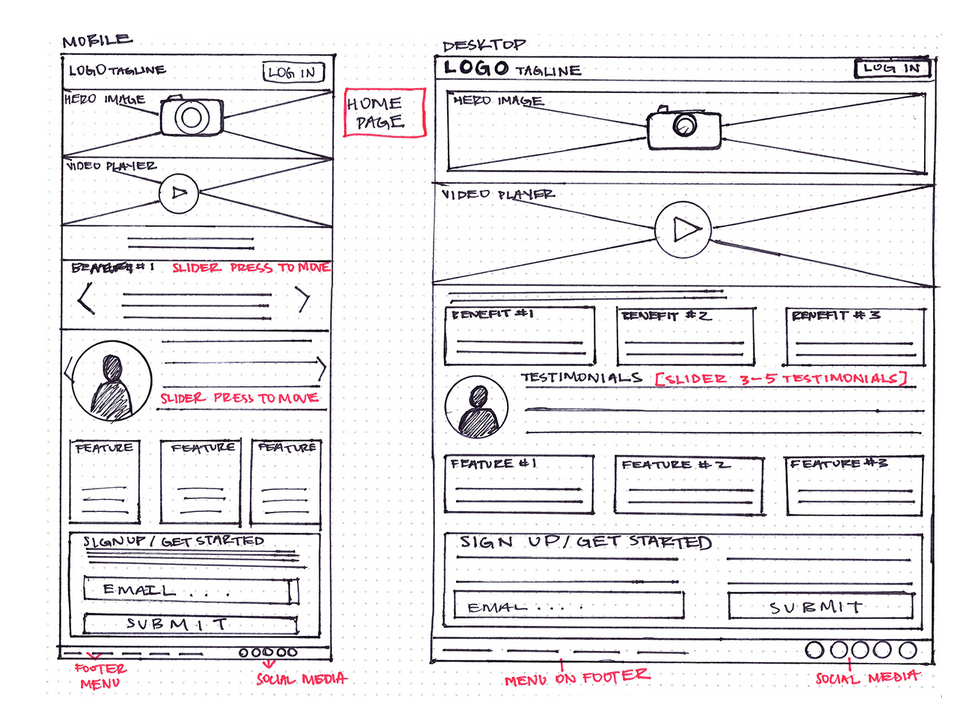 MOBILE
LOGO TAGLINE
LOG IN
HERO IMAGE
VIDEO PLAYER
#1 SLIDER PRESS TO MOVE
SLIDER PRESS TO MOVE
FEATURE
FEATURE
FEATURE
SIGNUP / GET STARTED
EMAIL . . .
SUBMIT
FOOTER
MENU
SOCIAL MEDIA
HOME
PAGE
DESKTOP
LOGO TAGLINE
LOG IN
HERO IMAGE
VIDEO PLAYER
BENEFIT #1
BENEFIT #2
BENEFIT #3
TESTIMONIALS [SLIDER 3-5 TESTIMONIALS]
FEATURE #1
FEATURE #2
FEATURE #3
SIGN UP/GET STARTED
EMAL . . . .
SUBMIT
MENU ON FOOTER
SOCIAL MEDIA